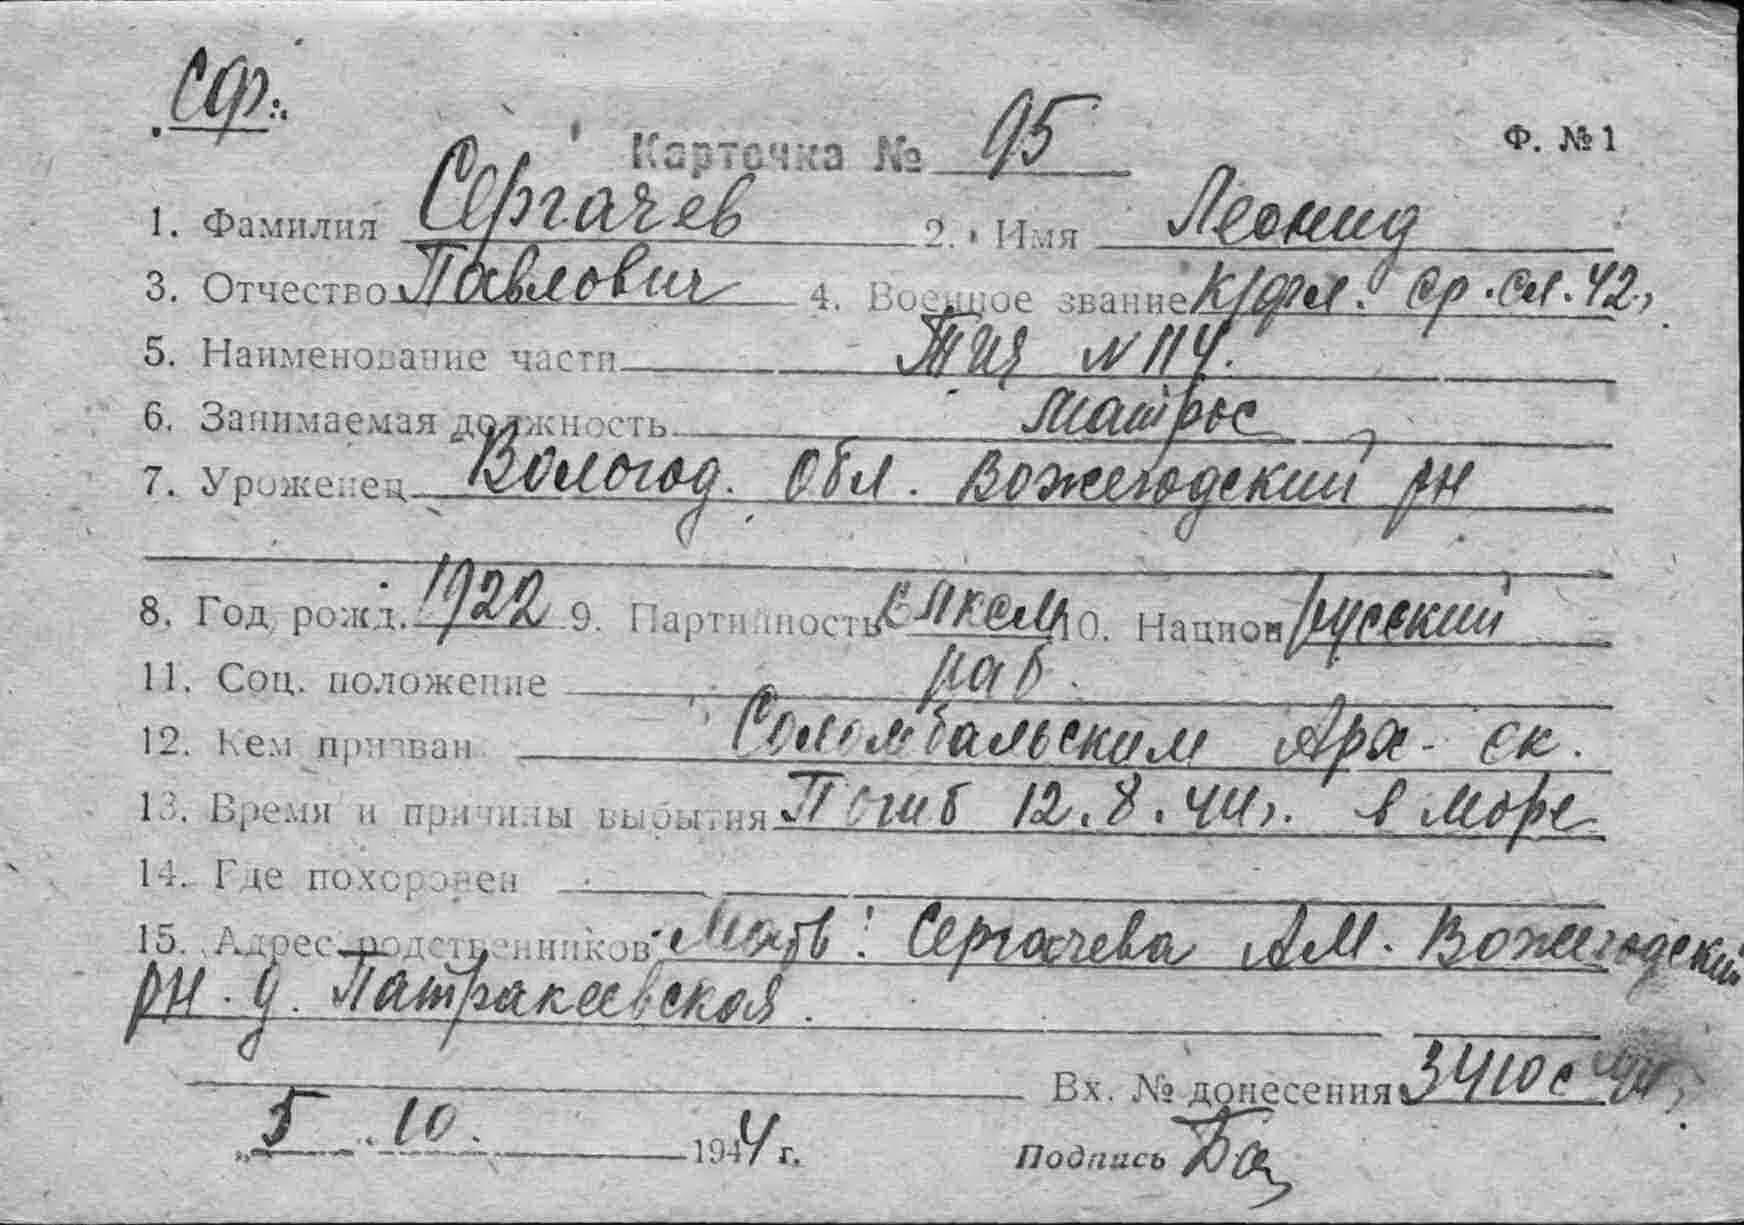 СФ.
Карточка № 95
Ф. № 1
1. Фамилия Сергачев 2. Имя Леонид
3. Отчество Павлович 4. Военное звание К/фл. ср.сл. 42г.
5. Наименование части ТЩ N 114.
6. Занимаемая должность матрос
7. Уроженец Вологод. Обл. Вожегодский рн
8. Год рожд. 1922 9. Партийность ВЛКСМ 10. Национ русский
11. Соц. положение раб.
12. Кем призван Соломбальским Арх-ск.
13. Время и причины выбытия Погиб 12.8.44г. в море
14. Где похоронен
15. Адрес родственников Мать: Сергачева А.М. Вожегодский
рн. д. Патракеевская.
Вх. № донесения 3410с 44г.
„5 . 10. 1944 г.
Подпись